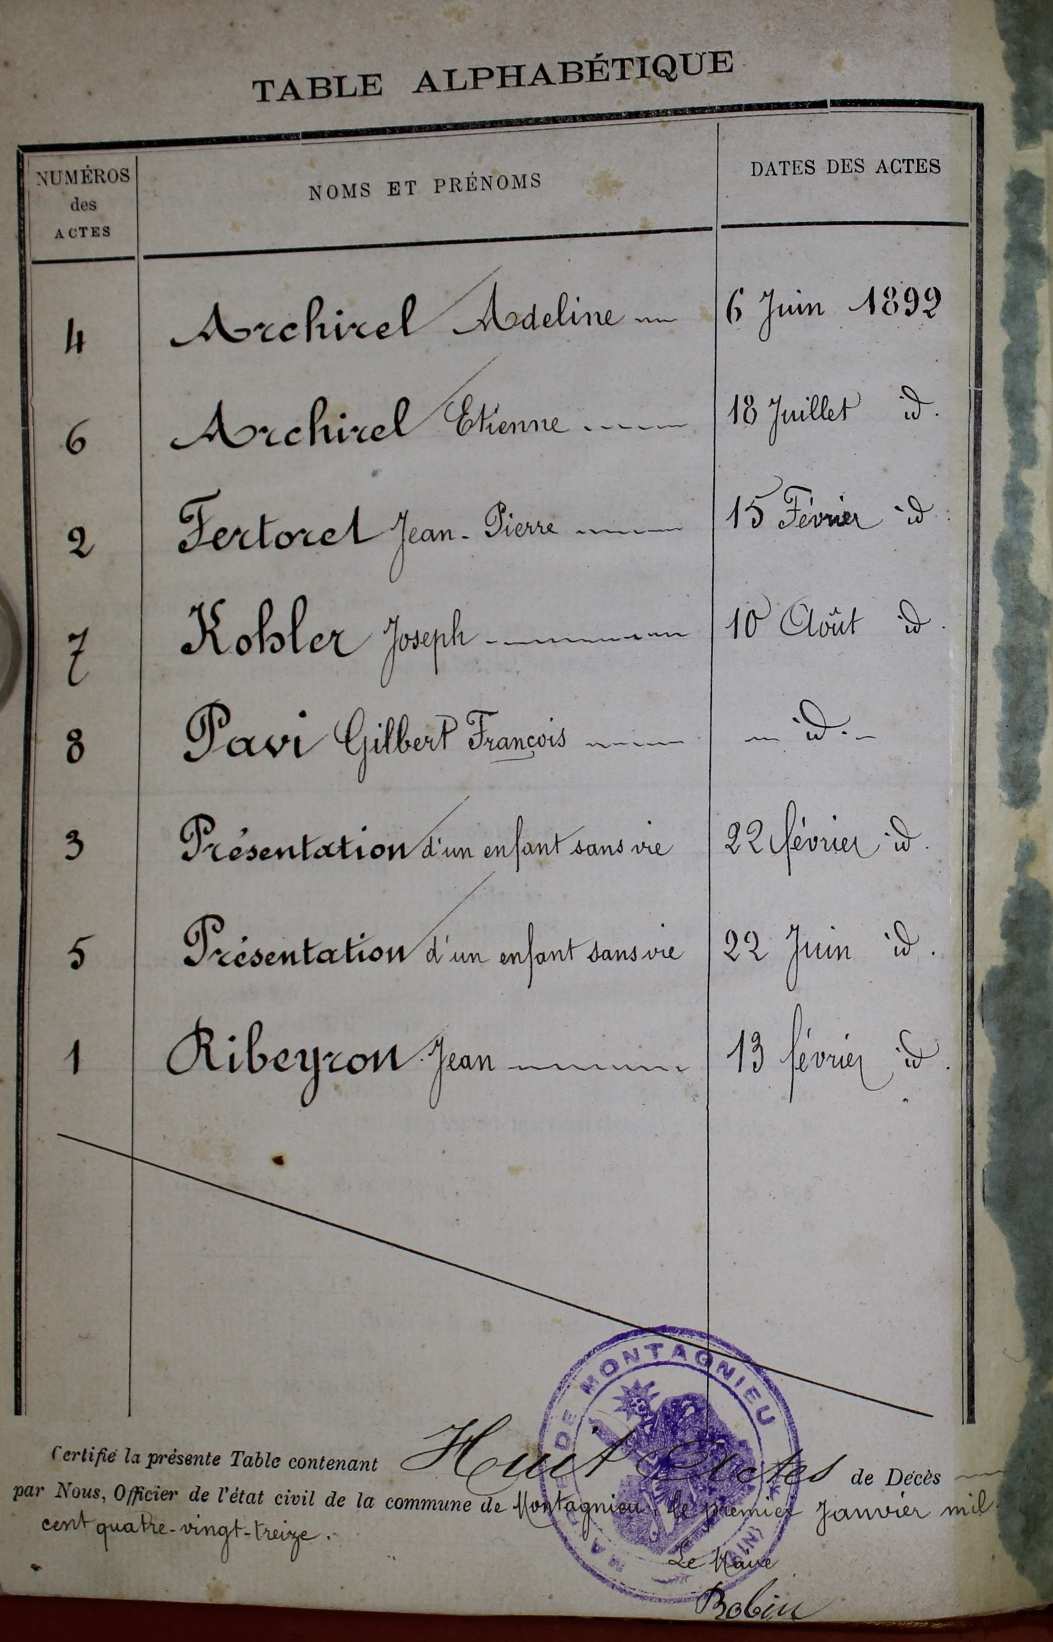 TABLE ALPHABÉTIQUE
NUMÉROS des ACTES NOMS ET PRÉNOMS DATES DES ACTES
4 Archirel Adeline 6 Juin 1892
6 Archirel Etienne 18 Juillet id.
2 Fertoret Jean-Pierre 15 Février id
7 Kohler Joseph 10 Août id.
8 Pavi Gilbert François — id. —
3 Présentation d'un enfant sans vie 22 février id.
5 Présentation d'un enfant sans vie 22 Juin id.
1 Ribeyron Jean 13 février id.
MAIRIE DE MONTAGNIEU (AIN)
Certifié la présente Table contenant Huit Actes de Décès
par Nous, Officier de l'état civil de la commune de Montagnieu, le premier Janvier mil
cent quatre-vingt-treize.
Le Maire
Bobin